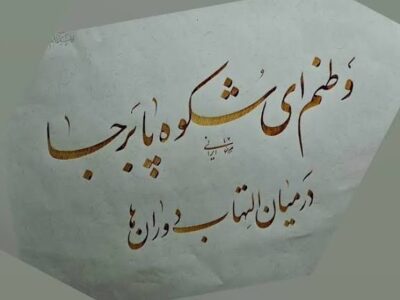 وَطنم ای شُکوه پا بَرجا
دَرمیان اِلتهاب دوران ها